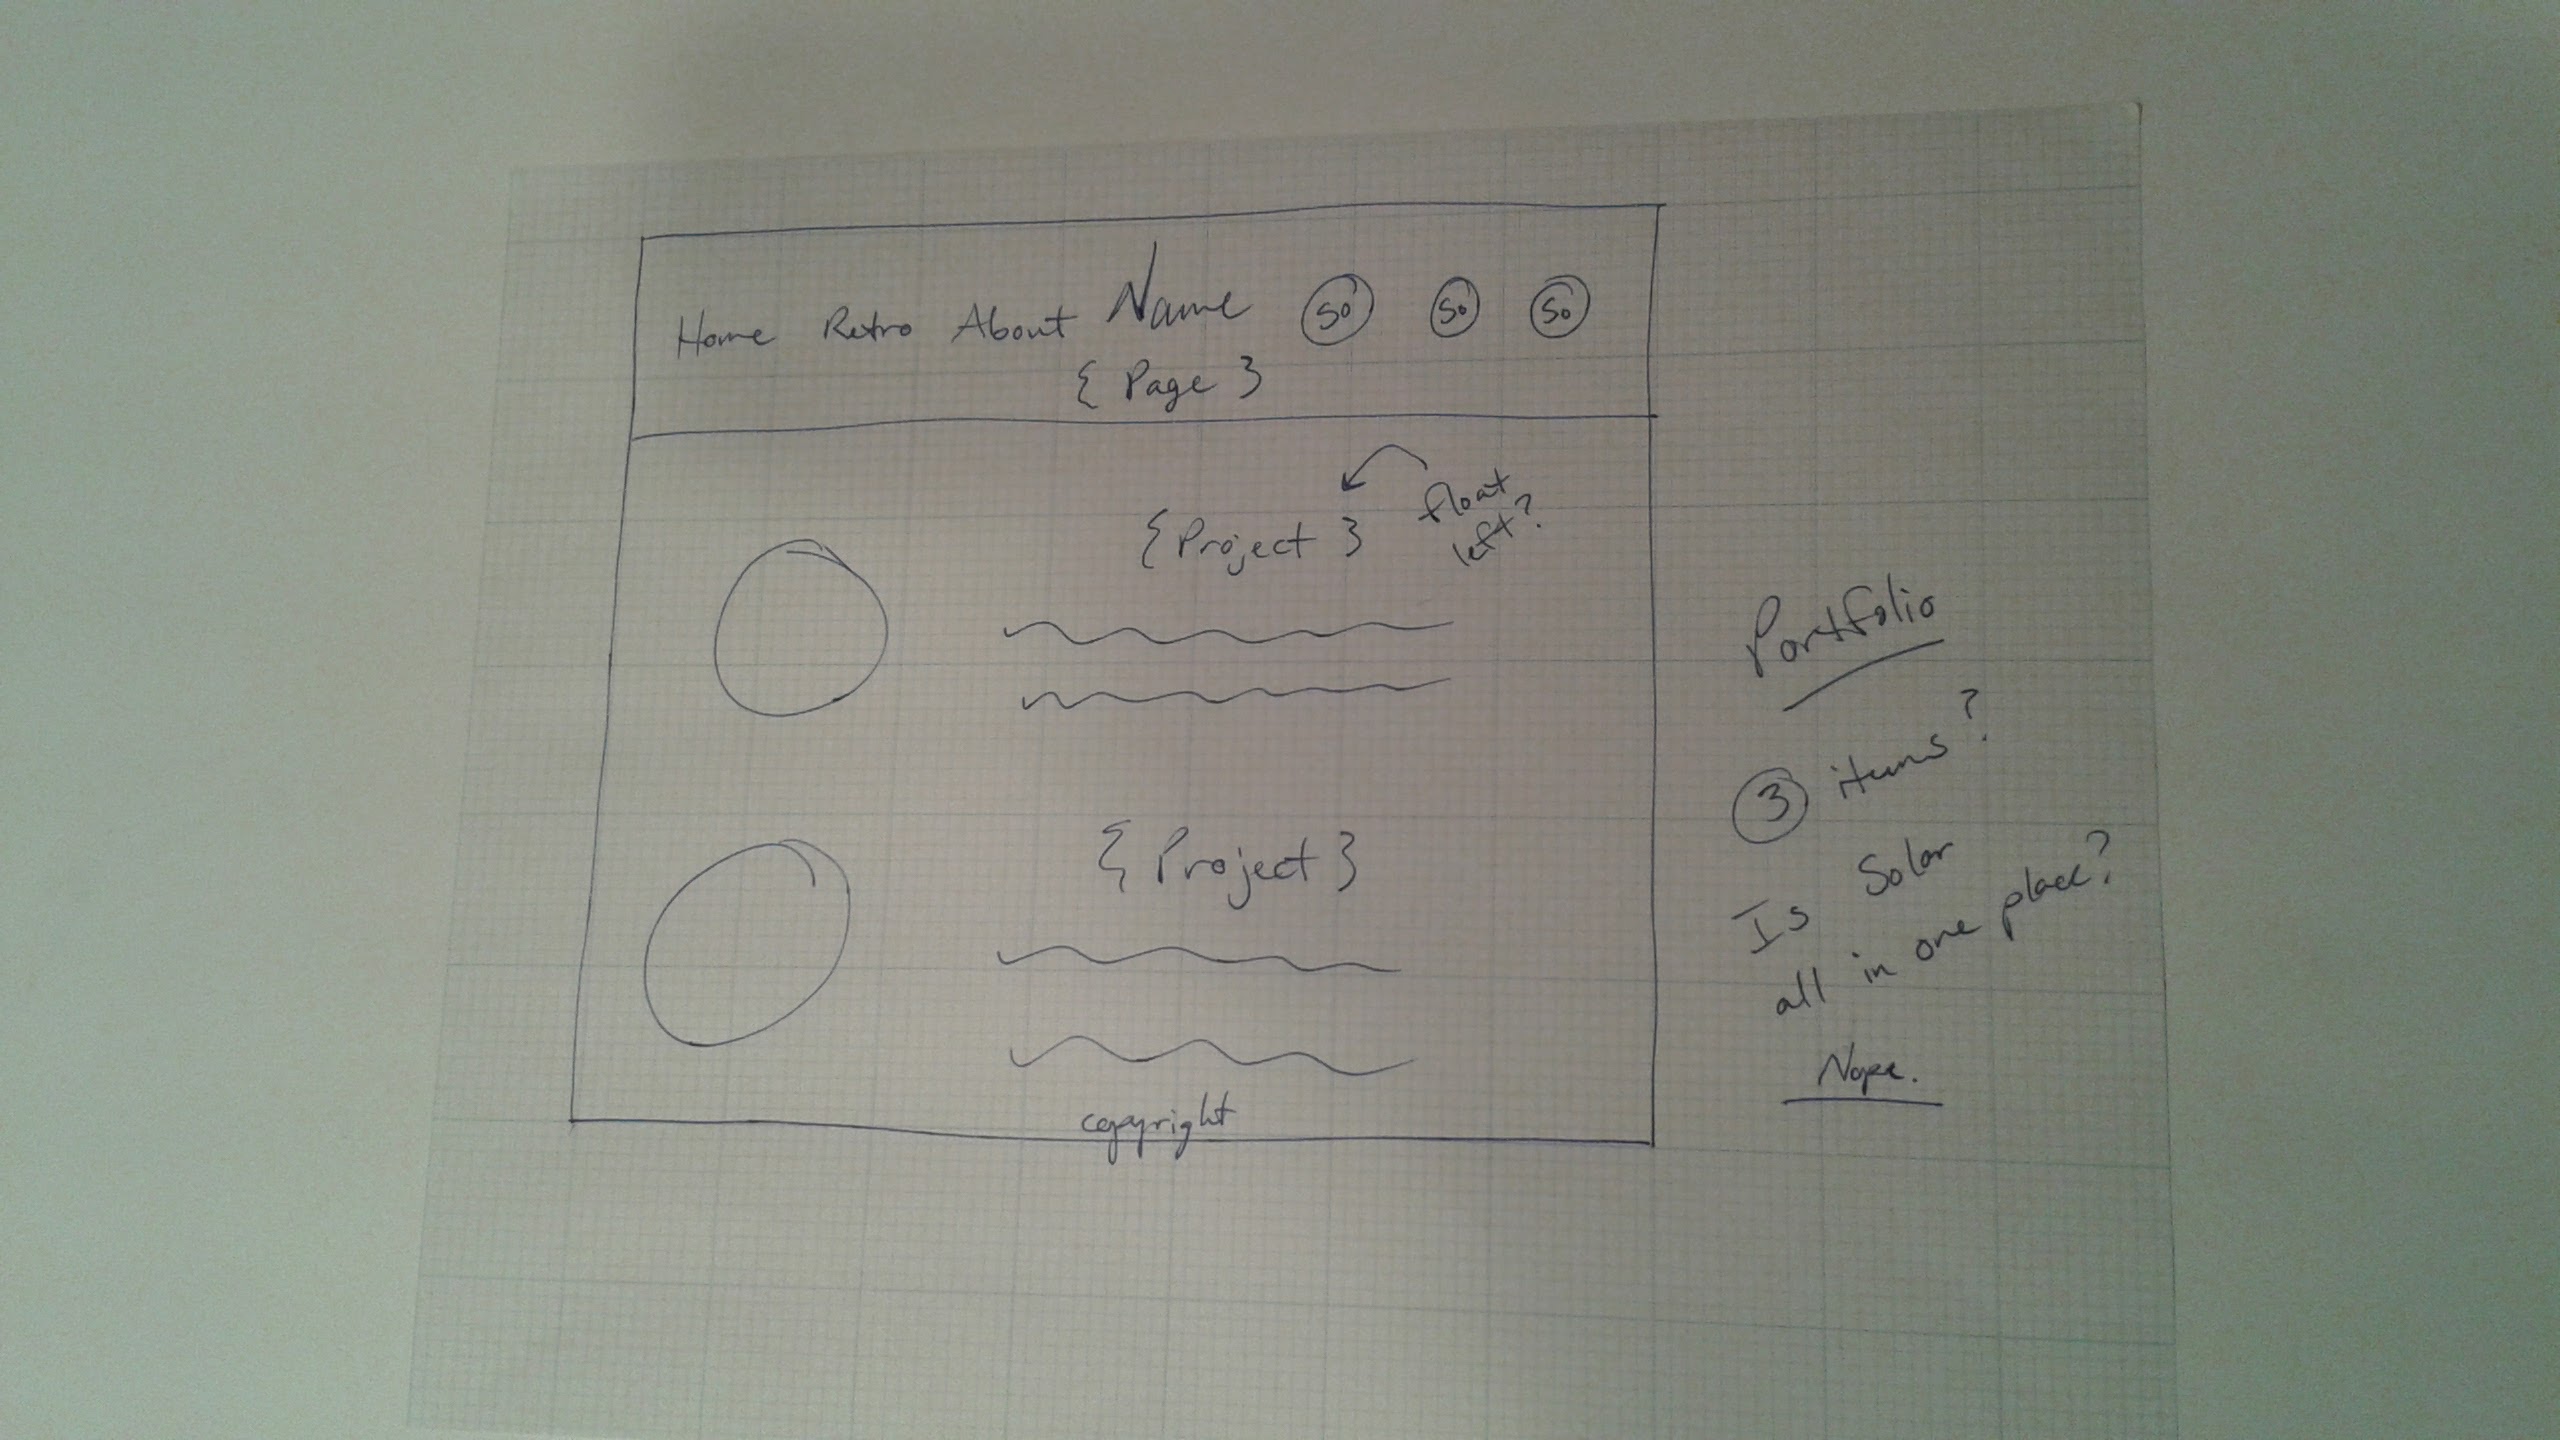 Home Retro About Name So So So
{ Page }
{ Project }
float
left?
{ Project }
copyright
Portfolio
3 items?
Is Solar
all in one place?
Nope.